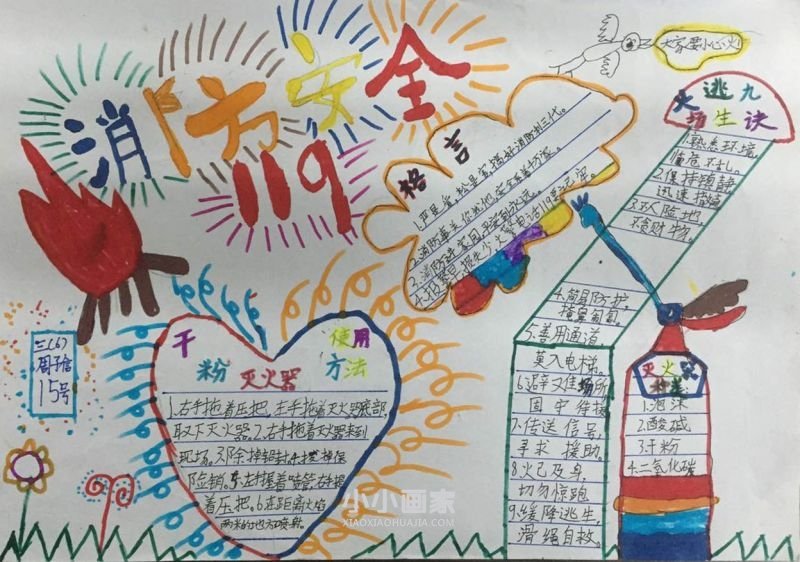 消防安全
119
大家要小心火
火场逃生九诀
1.熟悉环境,
临危不乱。
2.保持镇静
迅速撤离
3.不入险地
不贪财物。
4.简易防护,
掩鼻匍匐。
5.善用通道
莫入电梯。
6.避难场所
固守待援
7.传送信号,
寻求援助。
8.火已及身,
切勿惊跑
9.缓降逃生,
滑绳自救。
格言
1.严是爱,松是害,搞好消防利三代。
2.消防事关你我他,安全
3.消防进家园,平安到永远。
4.报警早,损失少,火警电话119要记牢。
三(6)
15号
干粉灭火器使用方法
1.右手拖着压把,左手拖着灭火器底部,
取下灭火器。2.右手拖着灭火器来到
现场。3.除掉铅封。4.拔掉保
险销。5.左手握着喷管,右手提
着压把。6.在距离火焰
两米的地方喷射。
灭火器
种类
1.泡沫
2.酸碱
3.干粉
4.二氧化碳
小小画家
XIAOXIAOHUAJIA.COM